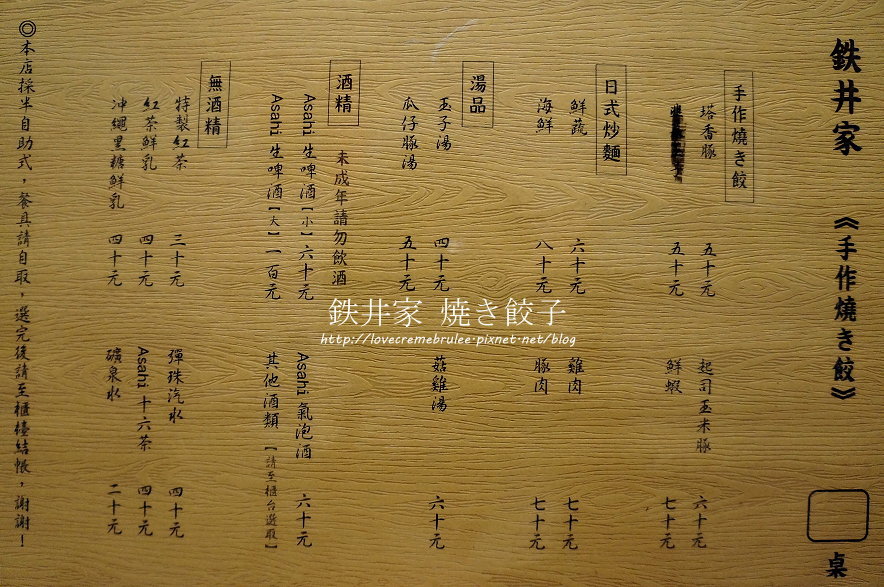 鉄井家 《手作燒き餃》
桌
手作燒き餃
塔香豚 五十元
五十元
起司玉米豚 六十元
鮮蝦 七十元
日式炒麵
鮮蔬 六十元
海鮮 八十元
雞肉 七十元
豚肉 七十元
湯品
玉子湯 四十元
瓜仔豚湯 五十元
菇雞湯 六十元
酒精 未成年請勿飲酒
Asahi 生啤酒【小】六十元
Asahi 生啤酒【大】一百元
Asahi 氣泡酒 六十元
其他酒類【請至櫃台選取】
無酒精
特製紅茶 三十元
紅茶鮮乳 四十元
沖繩黑糖鮮乳 四十元
彈珠汽水 四十元
Asahi 十六茶 四十元
礦泉水 二十元
◎本店採半自助式，餐具請自取，選完後請至櫃檯結帳，謝謝！
鉄井家 焼き餃子
http://lovecremebrulee.pixnet.net/blog